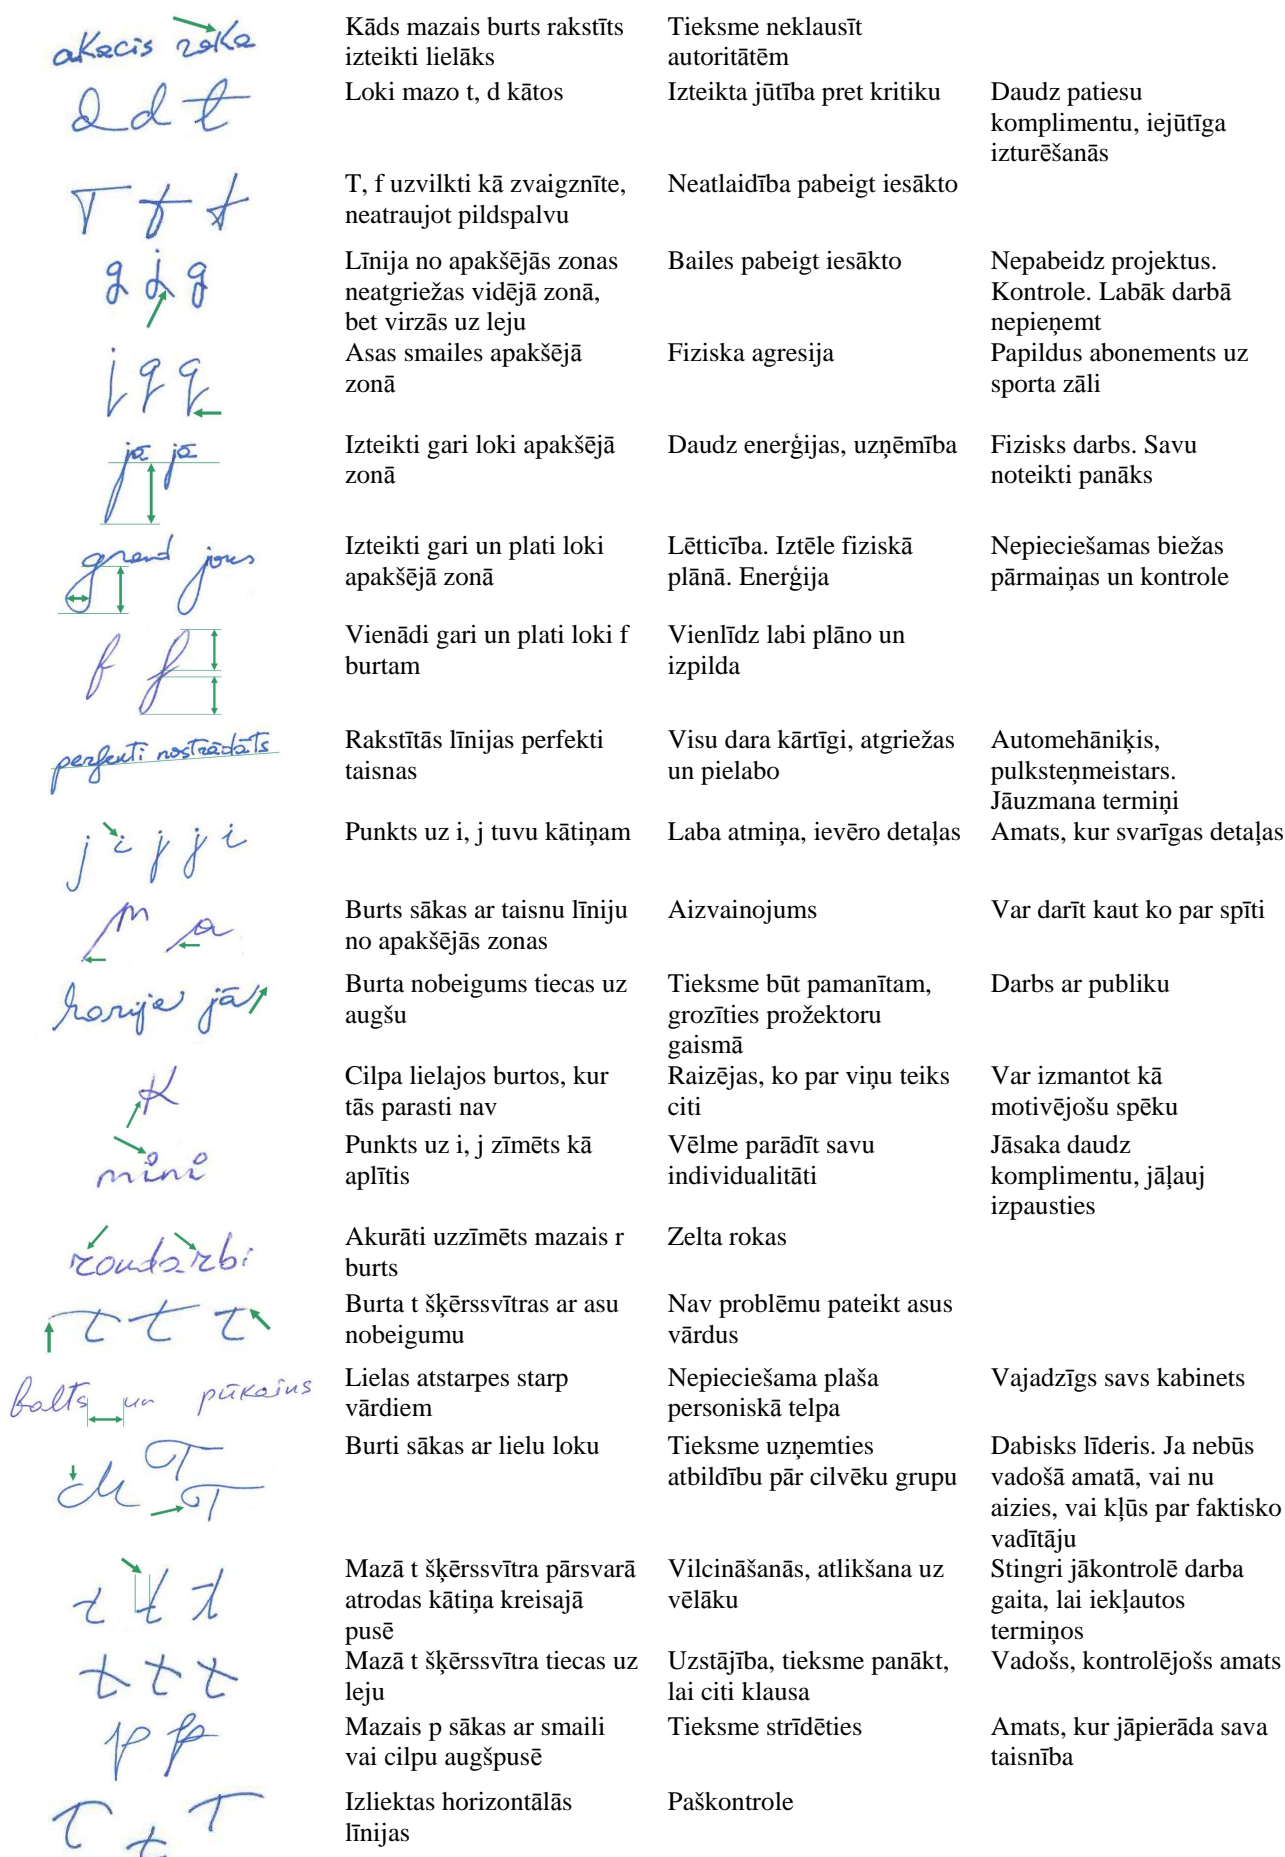 akacis raka
Kāds mazais burts rakstīts
izteikti lielāks
Tieksme neklausīt
autoritātēm
d d t
Loki mazo t, d kātos
Izteikta jūtība pret kritiku
Daudz patiesu
komplimentu, iejūtīga
izturēšanās
T f t
T, f uzvilkti kā zvaigznīte,
neatraujot pildspalvu
Neatlaidība pabeigt iesākto
g j g
Līnija no apakšējās zonas
neatgriežas vidējā zonā,
bet virzās uz leju
Bailes pabeigt iesākto
Nepabeidz projektus.
Kontrole. Labāk darbā
nepieņemt
j g g
Asas smailes apakšējā
zonā
Fiziska agresija
Papildus abonements uz
sporta zāli
jā jā
Izteikti gari loki apakšējā
zonā
Daudz enerģijas, uzņēmība
Fizisks darbs. Savu
noteikti panāks
grand jours
Izteikti gari un plati loki
apakšējā zonā
Lētticība. Iztēle fiziskā
plānā. Enerģija
Nepieciešamas biežas
pārmaiņas un kontrole
f f
Vienādi gari un plati loki f
burtam
Vienlīdz labi plāno un
izpilda
perfekti nostrādāts
Rakstītās līnijas perfekti
taisnas
Visu dara kārtīgi, atgriežas
un pielabo
Automehāniķis,
pulksteņmeistars.
Jāuzmana termiņi
j i j j i
Punkts uz i, j tuvu kātiņam
Laba atmiņa, ievēro detaļas
Amats, kur svarīgas detaļas
m a
Burts sākas ar taisnu līniju
no apakšējās zonas
Aizvainojums
Var darīt kaut ko par spīti
jā
Burta nobeigums tiecas uz
augšu
Tieksme būt pamanītam,
grozīties prožektoru
gaismā
Darbs ar publiku
K
Cilpa lielajos burtos, kur
tās parasti nav
Raizējas, ko par viņu teiks
citi
Var izmantot kā
motivējošu spēku
mini
Punkts uz i, j zīmēts kā
aplītis
Vēlme parādīt savu
individualitāti
Jāsaka daudz
komplimentu, jāļauj
izpausties
roudarbi
Akurāti uzzīmēts mazais r
burts
Zelta rokas
t t t
Burta t šķērssvītras ar asu
nobeigumu
Nav problēmu pateikt asus
vārdus
balts un pūkains
Lielas atstarpes starp
vārdiem
Nepieciešama plaša
personiskā telpa
Vajadzīgs savs kabinets
M T T
Burti sākas ar lielu loku
Tieksme uzņemties
atbildību pār cilvēku grupu
Dabisks līderis. Ja nebūs
vadošā amatā, vai nu
aizies, vai kļūs par faktisko
vadītāju
t t t
Mazā t šķērssvītra pārsvarā
atrodas kātiņa kreisajā
pusē
Vilcināšanās, atlikšana uz
vēlāku
Stingri jākontrolē darba
gaita, lai iekļautos
termiņos
t t t
Mazā t šķērssvītra tiecas uz
leju
Uzstājība, tieksme panākt,
lai citi klausa
Vadošs, kontrolējošs amats
p p
Mazais p sākas ar smaili
vai cilpu augšpusē
Tieksme strīdēties
Amats, kur jāpierāda sava
taisnība
T t T
Izliektas horizontālās
līnijas
Paškontrole